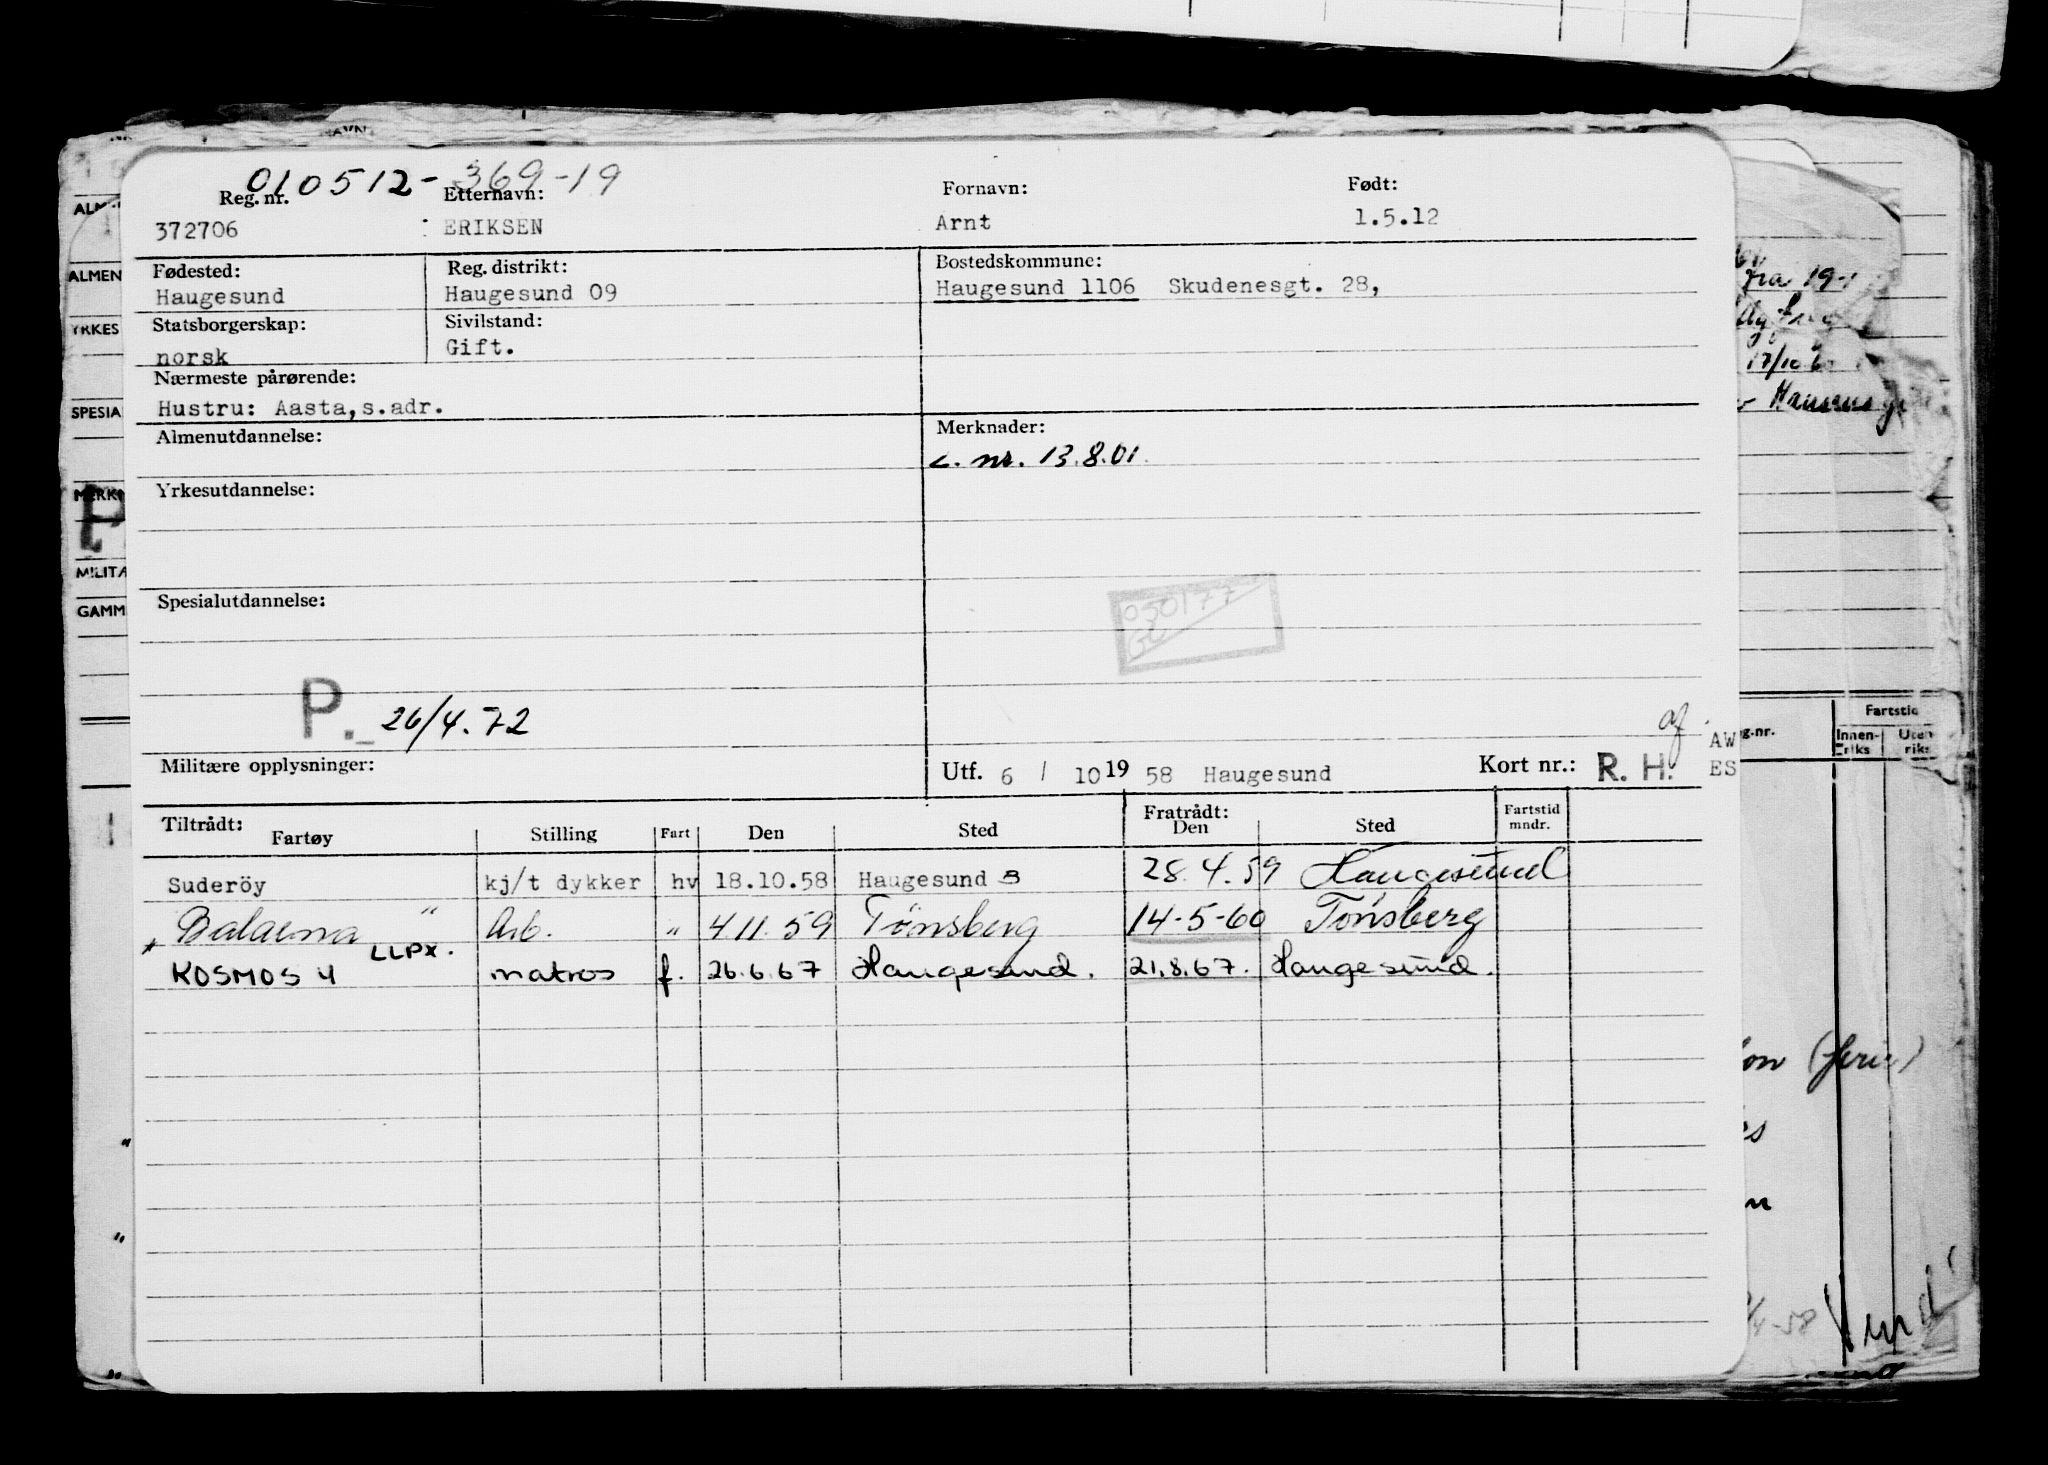 010512-369-19
Reg. nr. Etternavn: Fornavn: Født:
372706 ERIKSEN Arnt 1.5.12
Fødested: Reg. distrikt: Bostedskommune:
Haugesund Haugesund 09 Haugesund 1106 Skudenesgt. 28,
Statsborgerskap: Sivilstand:
norsk Gift.
Nærmeste pårørende:
Hustru: Aasta, s.adr.
Almenutdannelse: Merknader:
L. nr. 13.8.01.
Yrkesutdannelse:
Spesialutdannelse:
050177
P. 26/4.72
Militære opplysninger: Utf. 6 / 10 19 58 Haugesund Kort nr.: R. H. AW
ES
Tiltrådt: Fratrådt:
Fartøy Stilling Fart Den Sted Den Sted Fartstid mndr.
Suderöy kj/t dykker hv 18.10.58 Haugesund B 28.4.59 Haugesund
* Balaena " Arb. " 4 11. 59 Tönsberg 14-5-60 Tönsberg
KOSMOS 4 LLPX. matros f. 26.6.67 Haugesund. 21.8.67. Haugesund.
ALMEN
YRKES
SPESIA
MERK
MILITÆ
GAMM
fra 19
17/10
g.nr.
Fartstid
Innen-
riks
Uten
riks